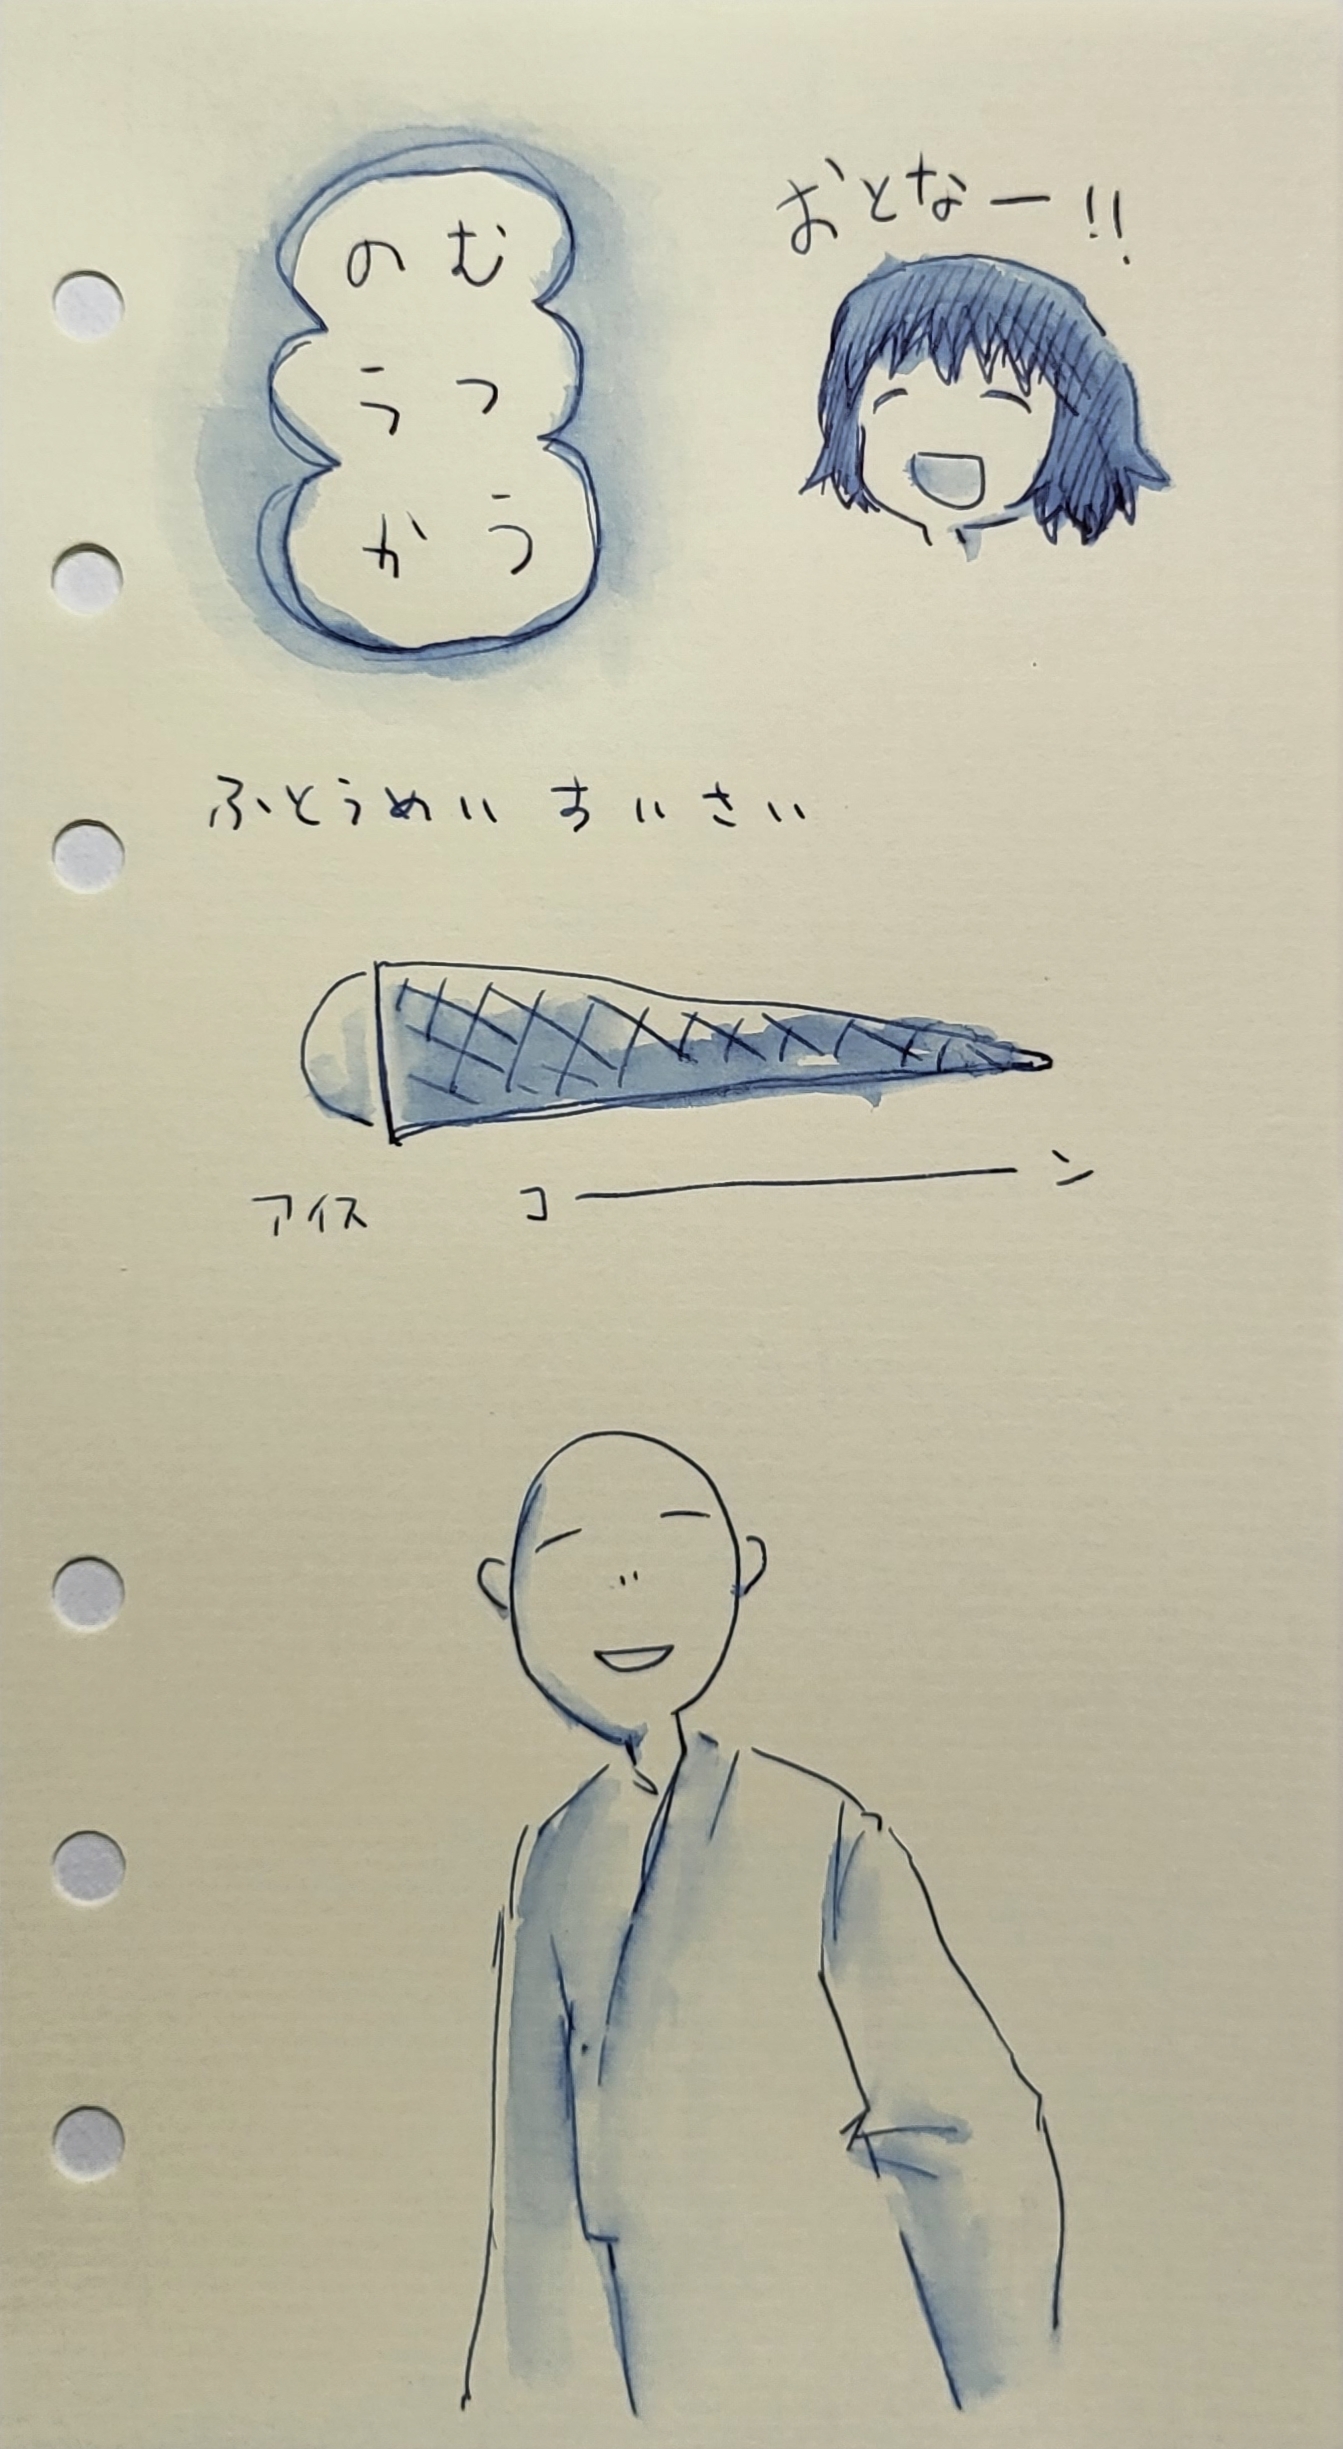 のむ
うつ
かう
おとなー!!
ふとうめい すいさい
アイス コーン